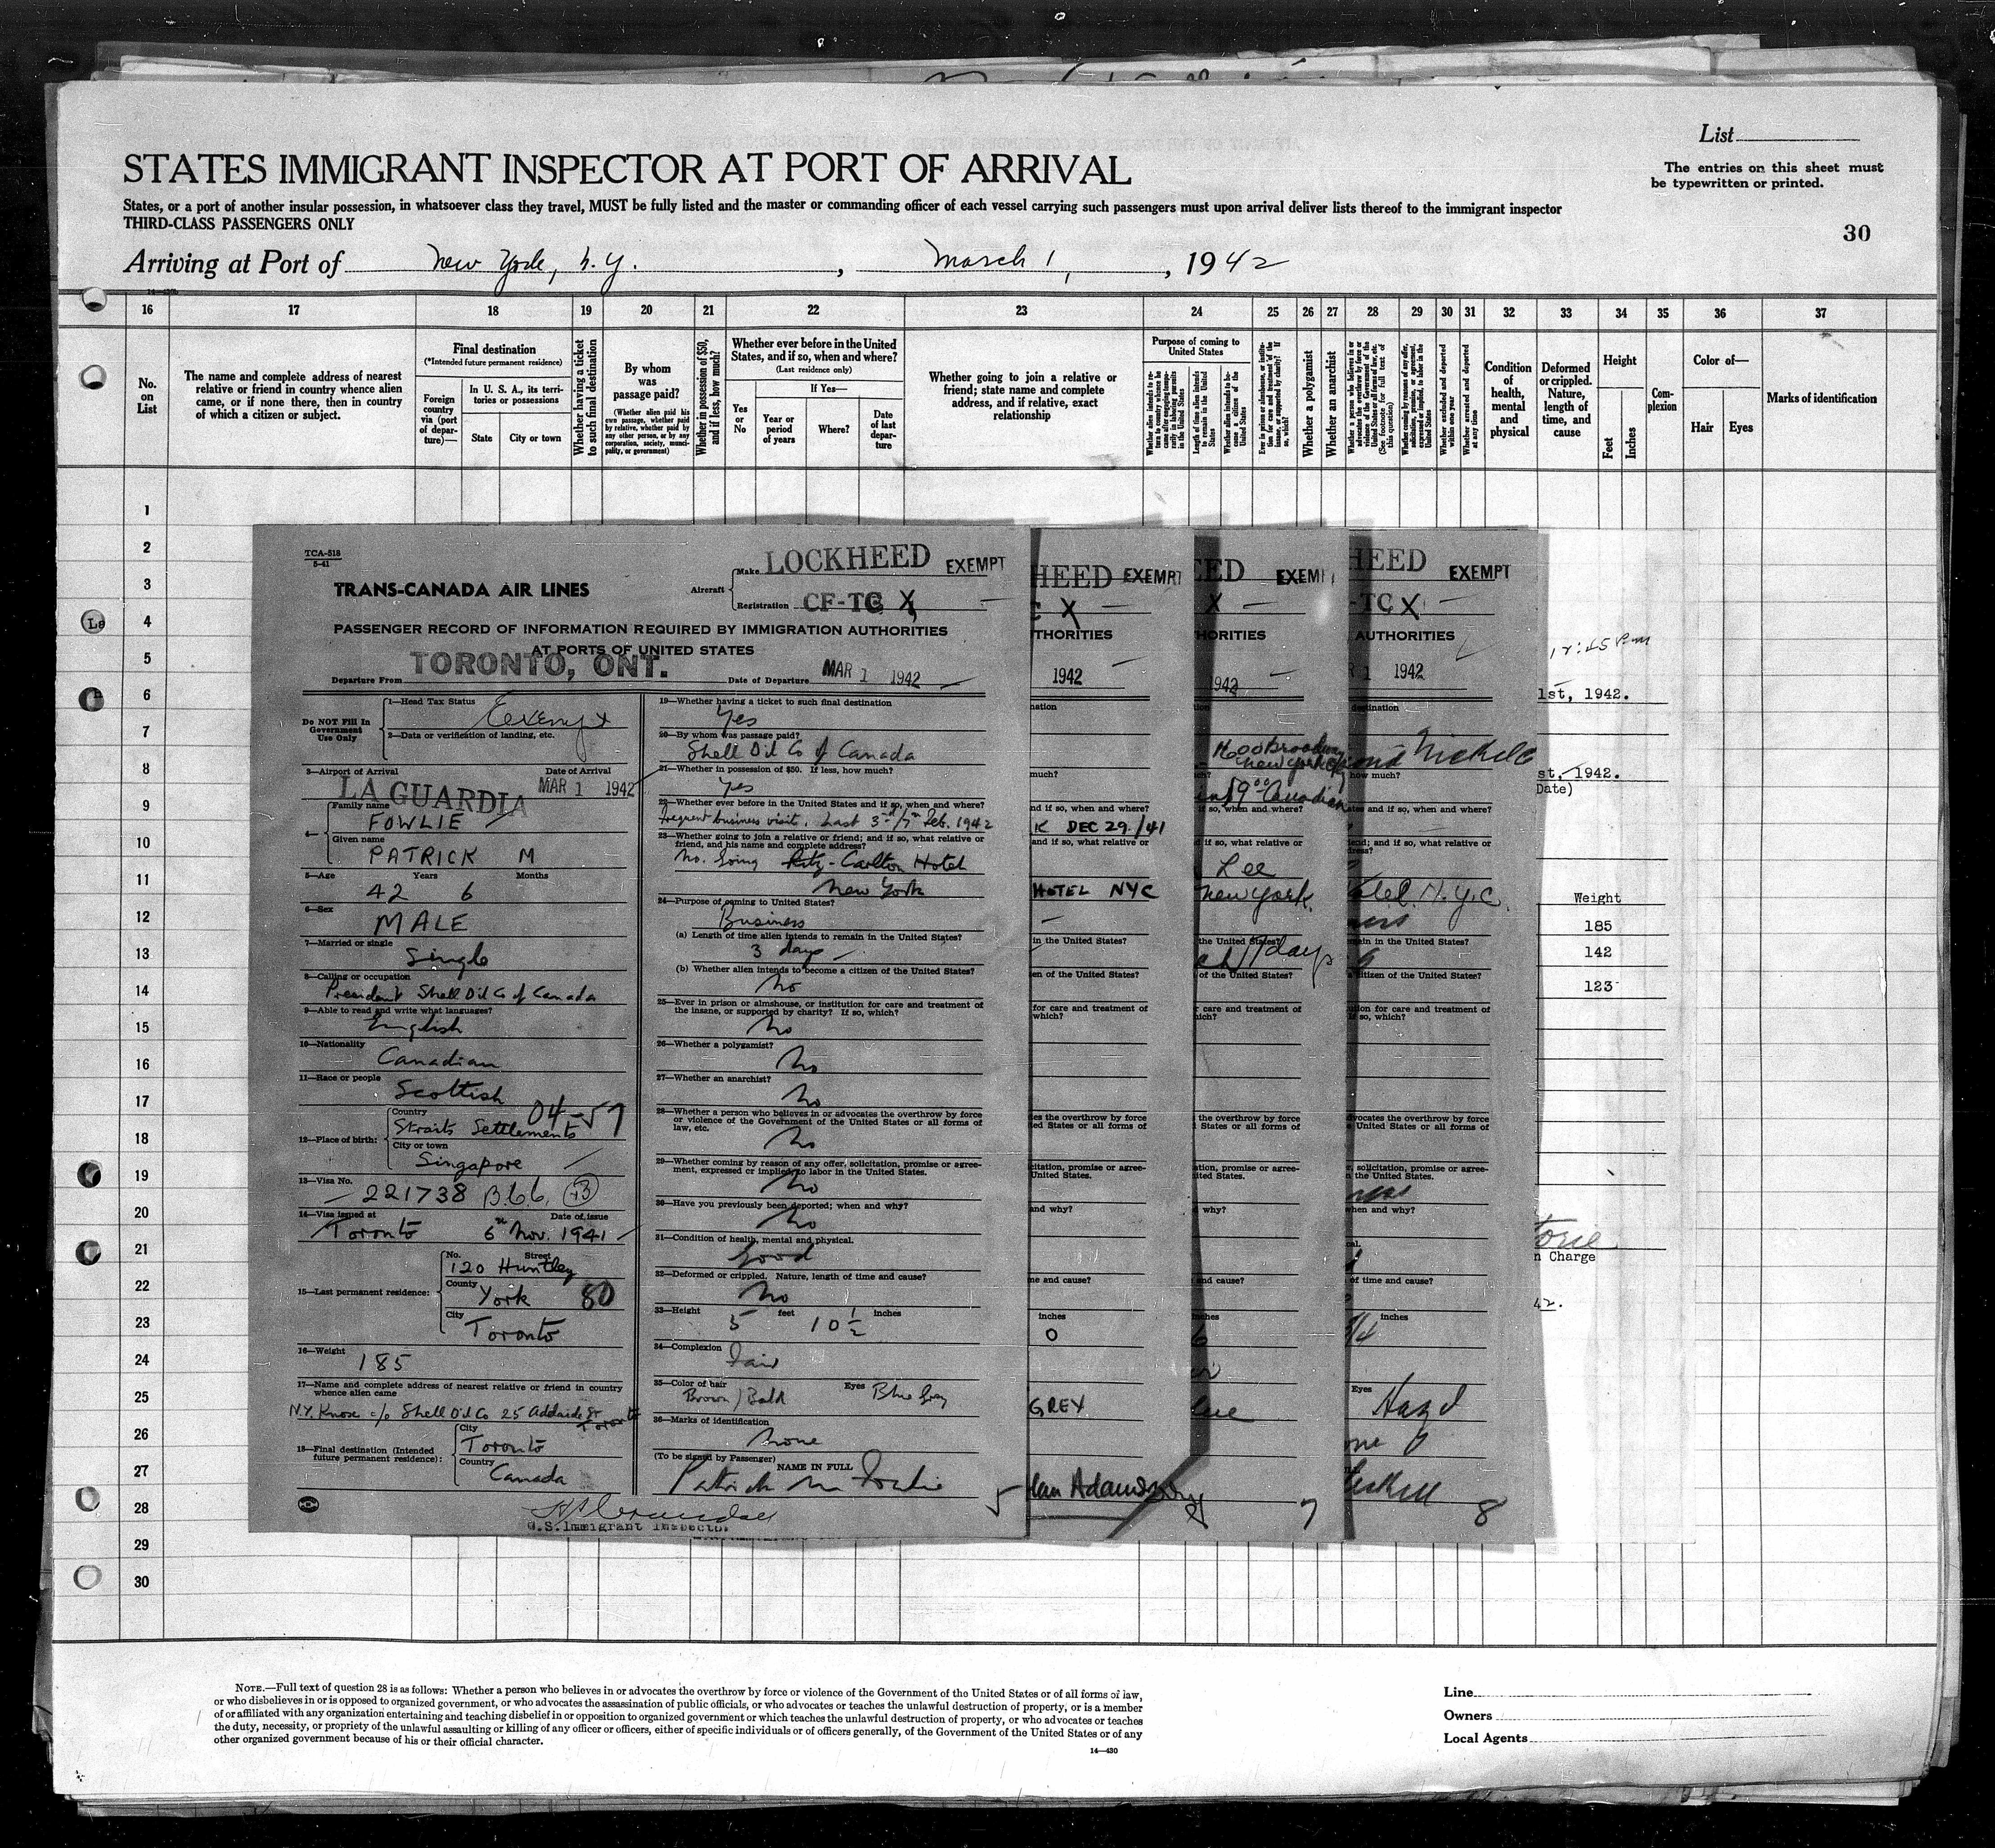 List
STATES IMMIGRANT INSPECTOR AT PORT OF ARRIVAL
The entries on this sheet must
be typewritten or printed.
States, or a port of another insular possession, in whatsoever class they travel, MUST be fully listed and the master or commanding officer of each vessel carrying such passengers must upon arrival deliver lists thereof to the immigrant inspector
THIRD-CLASS PASSENGERS ONLY
30
Arriving at Port of New York, N.Y., March 1, 1942
16 17 18 19 20 21 22 23 24 25 26 27 28 29 30 31 32 33 34 35 36 37
No. on List
The name and complete address of nearest
relative or friend in country whence alien
came, or if none there, then in country
of which a citizen or subject.
Final destination
(*Intended future permanent residence)
Foreign country via (port of departure)—
In U. S. A., its territories or possessions
State
City or town
Whether having a ticket to such final destination
By whom was passage paid?
(Whether alien paid his own passage, whether paid by relative, whether paid by any other person, or by any corporation, society, municipality, or government)
Whether in possession of $50, and if less, how much?
Whether ever before in the United
States, and if so, when and where?
(Last residence only)
Yes or No
If Yes—
Year or period of years
Where?
Date of last departure
Whether going to join a relative or
friend; state name and complete
address, and if relative, exact
relationship
Purpose of coming to United States
Whether alien intends to return to country whence he came after engaging temporarily in laboring pursuits in the United States
Length of time alien intends to remain in the United States
Whether alien intends to become a citizen of the United States
Ever in prison or almshouse, or institution for care and treatment of the insane, or supported by charity? If so, which?
Whether a polygamist
Whether an anarchist
Whether a person who believes in or advocates the overthrow by force or violence of the Government of the United States or all forms of law, etc. (See footnote for full text of this question)
Whether coming by reason of any offer, solicitation, promise, or agreement, expressed or implied, to labor in the United States
Whether excluded and deported within one year
Whether arrested and deported at any time
Condition of health, mental and physical
Deformed or crippled. Nature, length of time, and cause
Height
Feet
Inches
Complexion
Color of—
Hair
Eyes
Marks of identification
1
2
3
4
5
6
7
8
9
10
11
12
13
14
15
16
17
18
19
20
21
22
23
24
25
26
27
28
29
30
TCA-518
5-41
TRANS-CANADA AIR LINES
Aircraft
Make LOCKHEED EXEMPT
Registration CF-TC X
PASSENGER RECORD OF INFORMATION REQUIRED BY IMMIGRATION AUTHORITIES
AT PORTS OF UNITED STATES
Departure From TORONTO, ONT. Date of Departure MAR 1 1942
Do NOT Fill In
Government
Use Only
1—Head Tax Status
Exempt
2—Data or verification of landing, etc.
3—Airport of Arrival Date of Arrival
LA GUARDIA MAR 1 1942
4— Family name
FOWLIE
Given name
PATRICK M
5—Age Years Months
42 6
6—Sex
MALE
7—Married or single
Single
8—Calling or occupation
President Shell Oil Co of Canada
9—Able to read and write what languages?
English
10—Nationality
Canadian
11—Race or people
Scottish
04-57
12—Place of birth:
Country
Straits Settlements
City or town
Singapore
13—Visa No.
221738 B.66. (+3)
14—Visa issued at Date of issue
Toronto 6th Nov. 1941
15—Last permanent residence:
No. Street
120 Huntley
County
York 80
City
Toronto
16—Weight
185
17—Name and complete address of nearest relative or friend in country
whence alien came
N.Y. Knose c/o Shell Oil Co 25 Adelaide St
Toronto
18—Final destination (Intended
future permanent residence):
City
Toronto
Country
Canada
U.S. Immigrant Inspector
19—Whether having a ticket to such final destination
Yes
20—By whom was passage paid?
Shell Oil Co of Canada
21—Whether in possession of $50. If less, how much?
Yes
22—Whether ever before in the United States and if so, when and where?
Frequent business visit. Last 3rd/7th Feb. 1942
23—Whether going to join a relative or friend; and if so, what relative or
friend, and his name and complete address?
No. Going Ritz-Carlton Hotel
New York
24—Purpose of coming to United States?
Business
(a) Length of time alien intends to remain in the United States?
3 days
(b) Whether alien intends to become a citizen of the United States?
No
25—Ever in prison or almshouse, or institution for care and treatment of
the insane, or supported by charity? If so, which?
No
26—Whether a polygamist?
No
27—Whether an anarchist?
No
28—Whether a person who believes in or advocates the overthrow by force
or violence of the Government of the United States or all forms of
law, etc.
No
29—Whether coming by reason of any offer, solicitation, promise or agree-
ment, expressed or implied, to labor in the United States.
No
30—Have you previously been deported; when and why?
No
31—Condition of health, mental and physical.
Good
32—Deformed or crippled. Nature, length of time and cause?
No
33—Height 5 feet 10 1/2 inches
34—Complexion
Fair
35—Color of hair Eyes
Brown/Bald Blue Gray
36—Marks of identification
None
(To be signed by Passenger)
NAME IN FULL
Patrick M Fowlie
5
HEED EXEMPT
C X
THORITIES
1942
K DEC 29/41
HOTEL NYC
in the United States?
inches
0
GREY
lan Adamson
EED EXEM
X
HORITIES
1942
Broadway
New York City
Canadian
Lee
New York.
7 days
7
HEED EXEMPT
-TC X
AUTHORITIES
R 1 1942
Hotel. N.Y.C.
inches
Eyes
Hazel
8
12:45 P.m
1st, 1942.
st, 1942.
Date)
Weight
185
142
123
n Charge
42.
NOTE.—Full text of question 28 is as follows: Whether a person who believes in or advocates the overthrow by force or violence of the Government of the United States or of all forms of law,
or who disbelieves in or is opposed to organized government, or who advocates the assassination of public officials, or who advocates or teaches the unlawful destruction of property, or is a member
of or affiliated with any organization entertaining and teaching disbelief in or opposition to organized government or which teaches the unlawful destruction of property, or who advocates or teaches
the duty, necessity, or propriety of the unlawful assaulting or killing of any officer or officers, either of specific individuals or of officers generally, of the Government of the United States or of any
other organized government because of his or their official character.
14—430
Line
Owners
Local Agents